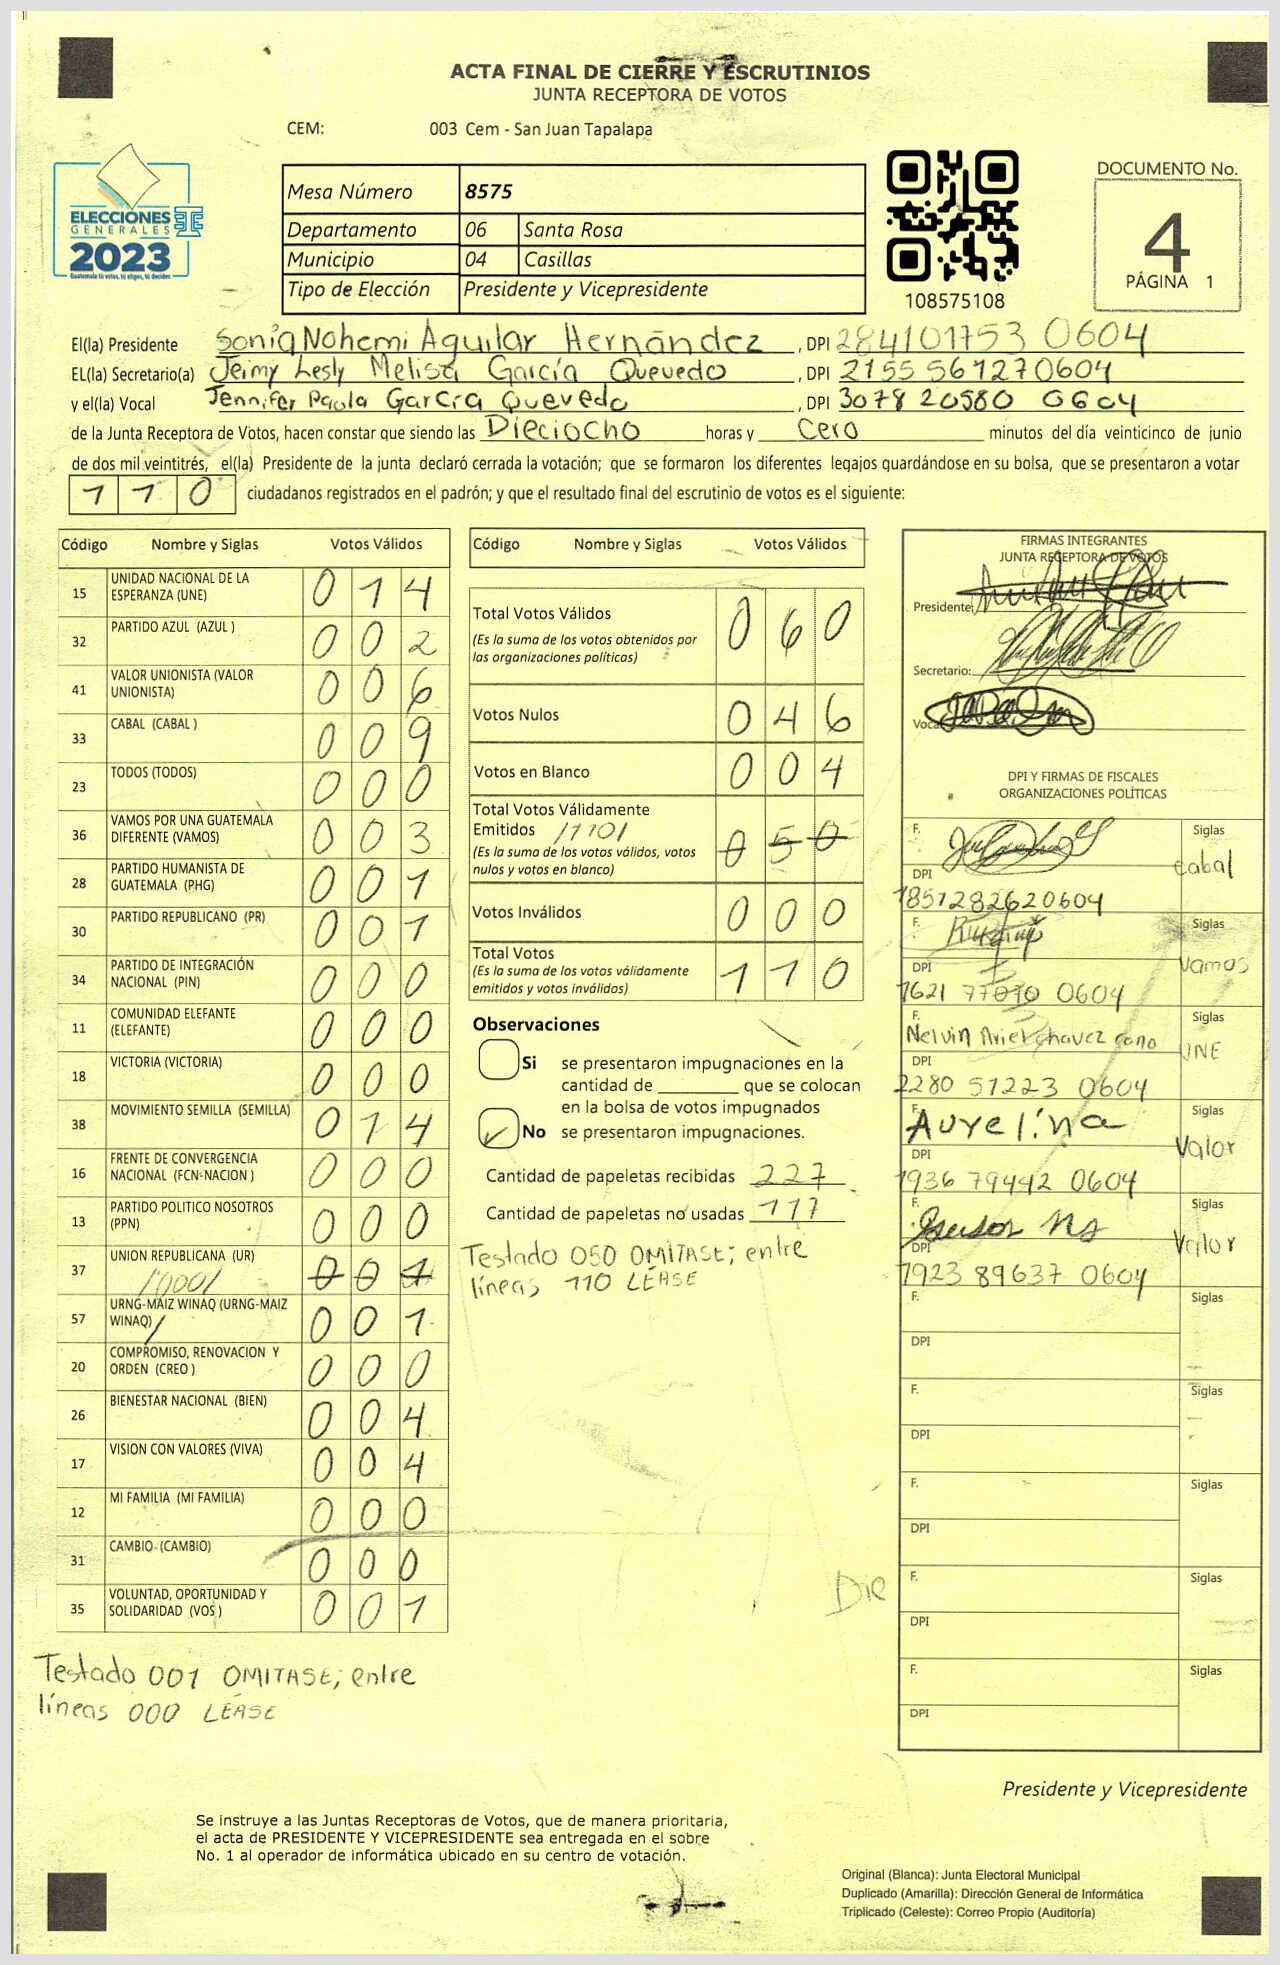 ACTA FINAL DE CIERRE Y ESCRUTINIOS
JUNTA RECEPTORA DE VOTOS
CEM: 003 Cem - San Juan Tapalapa
ELECCIONES
GENERALES
2023
Guatemala tú votas, tú eliges, tú decides
Mesa Número 8575
Departamento 06 Santa Rosa
Municipio 04 Casillas
Tipo de Elección Presidente y Vicepresidente
108575108
DOCUMENTO No.
4
PÁGINA 1
El(la) Presidente Sonia Nohemi Aguilar Hernández, DPI 284101753 0604
EL(la) Secretario(a) Jeimy Lesly Melisa García Quevedo, DPI 2155 561270604
y el(la) Vocal Jennifer Paola García Quevedo, DPI 3078 20580 0604
de la Junta Receptora de Votos, hacen constar que siendo las Dieciocho horas y Cero minutos del día veinticinco de junio
de dos mil veintitrés, el(la) Presidente de la junta declaró cerrada la votación; que se formaron los diferentes legajos guardándose en su bolsa, que se presentaron a votar
110 ciudadanos registrados en el padrón; y que el resultado final del escrutinio de votos es el siguiente:
Código Nombre y Siglas Votos Válidos
15 UNIDAD NACIONAL DE LA ESPERANZA (UNE) 014
32 PARTIDO AZUL (AZUL ) 002
41 VALOR UNIONISTA (VALOR UNIONISTA) 006
33 CABAL (CABAL ) 009
23 TODOS (TODOS) 000
36 VAMOS POR UNA GUATEMALA DIFERENTE (VAMOS) 003
28 PARTIDO HUMANISTA DE GUATEMALA (PHG) 001
30 PARTIDO REPUBLICANO (PR) 001
34 PARTIDO DE INTEGRACIÓN NACIONAL (PIN) 000
11 COMUNIDAD ELEFANTE (ELEFANTE) 000
18 VICTORIA (VICTORIA) 000
38 MOVIMIENTO SEMILLA (SEMILLA) 014
16 FRENTE DE CONVERGENCIA NACIONAL (FCN-NACION ) 000
13 PARTIDO POLITICO NOSOTROS (PPN) 000
37 UNION REPUBLICANA (UR) /000/ 001
57 URNG-MAIZ WINAQ (URNG-MAIZ WINAQ) 001
20 COMPROMISO, RENOVACION Y ORDEN (CREO ) 000
26 BIENESTAR NACIONAL (BIEN) 004
17 VISION CON VALORES (VIVA) 004
12 MI FAMILIA (MI FAMILIA) 000
31 CAMBIO (CAMBIO) 000
35 VOLUNTAD, OPORTUNIDAD Y SOLIDARIDAD (VOS ) 001
Testado 001 OMITASE; entre
líneas 000 LÉASE
Código Nombre y Siglas Votos Válidos
Total Votos Válidos 060
(Es la suma de los votos obtenidos por
las organizaciones políticas)
Votos Nulos 046
Votos en Blanco 004
Total Votos Válidamente
Emitidos /110/ 050
(Es la suma de los votos válidos, votos
nulos y votos en blanco)
Votos Inválidos 000
Total Votos 110
(Es la suma de los votos válidamente
emitidos y votos inválidos)
Observaciones
Si se presentaron impugnaciones en la
cantidad de ________ que se colocan
en la bolsa de votos impugnados
No se presentaron impugnaciones.
Cantidad de papeletas recibidas 227
Cantidad de papeletas no usadas 117
Testado 050 OMITASE; entre
líneas 110 LÉASE
FIRMAS INTEGRANTES
JUNTA RECEPTORA DE VOTOS
Presidente:
Secretario:
Vocal
DPI Y FIRMAS DE FISCALES
ORGANIZACIONES POLÍTICAS
F. Siglas
Cabal
DPI
1851282620604
F. Siglas
Vamos
DPI
1621 77010 0604
F. Siglas
Nelvin Ariel chavez cano UNE
DPI
2280 51223 0604
F. Siglas
Aurelina
Valor
DPI
1936 79442 0604
F. Siglas
Valor
DPI
1923 89637 0604
F. Siglas
DPI
F. Siglas
DPI
F. Siglas
DPI
F. Siglas
DPI
F. Siglas
DPI
Presidente y Vicepresidente
Se instruye a las Juntas Receptoras de Votos, que de manera prioritaria,
el acta de PRESIDENTE Y VICEPRESIDENTE sea entregada en el sobre
No. 1 al operador de informática ubicado en su centro de votación.
Original (Blanca): Junta Electoral Municipal
Duplicado (Amarilla): Dirección General de Informática
Triplicado (Celeste): Correo Propio (Auditoría)